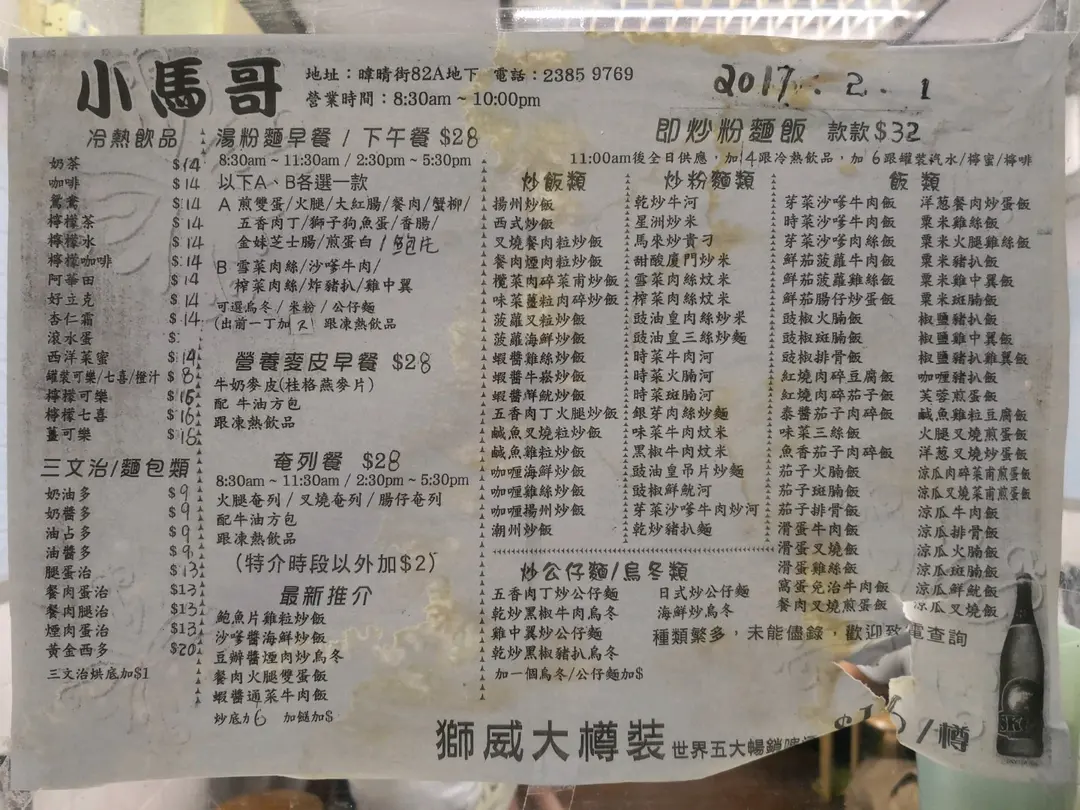 小馬哥
地址：暐晴街82A地下 電話：2385 9769
營業時間：8:30am ~ 10:00pm
2017.2.1
冷熱飲品
奶茶 $14
咖啡 $14
鴛鴦 $14
檸檬茶 $14
檸檬水 $14
檸檬咖啡 $14
阿華田 $14
好立克 $14
杏仁霜 $14
滾水蛋 $
西洋菜蜜 $14
罐裝可樂/七喜/橙汁 $8
檸檬可樂 $16
檸檬七喜 $16
薑可樂 $18
三文治/麵包類
奶油多 $9
奶醬多 $9
油占多 $9
油醬多 $9
腿蛋治 $13
餐肉蛋治 $13
餐肉腿治 $13
煙肉蛋治 $13
黃金西多 $20
三文治烘底加$1
湯粉麵早餐 / 下午餐 $28
8:30am ~ 11:30am / 2:30pm ~ 5:30pm
以下A、B各選一款
A 煎雙蛋/火腿/大紅腸/餐肉/蟹柳/
五香肉丁/獅子狗魚蛋/香腸/
金妹芝士腸/煎蛋白/鮑片
B 雪菜肉絲/沙嗲牛肉/
榨菜肉絲/炸豬扒/雞中翼
可選烏冬/米粉/公仔麵
(出前一丁加2) 跟凍熱飲品
營養麥皮早餐 $28
牛奶麥皮(桂格燕麥片)
配 牛油方包
跟凍熱飲品
奄列餐 $28
8:30am ~ 11:30am / 2:30pm ~ 5:30pm
火腿奄列/叉燒奄列/腸仔奄列
配牛油方包
跟凍熱飲品
(特介時段以外加$2)
最新推介
鮑魚片雞粒炒飯
沙嗲醬海鮮炒飯
豆瓣醬煙肉炒烏冬
餐肉火腿雙蛋飯
蝦醬通菜牛肉飯
炒底加6 加餸加$
即炒粉麵飯 款款$32
11:00am後全日供應，加4跟冷熱飲品，加6跟罐裝汽水/檸蜜/檸啡
炒飯類
揚州炒飯
西式炒飯
叉燒餐肉粒炒飯
餐肉煙肉粒炒飯
欖菜肉碎菜甫炒飯
味菜薑粒肉碎炒飯
菠蘿叉粒炒飯
菠蘿海鮮炒飯
蝦醬雞絲炒飯
蝦醬牛崧炒飯
蝦醬鮮魷炒飯
五香肉丁火腿炒飯
鹹魚叉燒粒炒飯
鹹魚雞粒炒飯
咖喱海鮮炒飯
咖喱雞絲炒飯
咖喱揚州炒飯
潮州炒飯
炒粉麵類
乾炒牛河
星洲炒米
馬來炒貴刁
甜酸廈門炒米
雪菜肉絲炆米
榨菜肉絲炆米
豉油皇肉絲炒米
豉油皇三絲炒麵
時菜牛肉河
時菜火腩河
時菜斑腩河
銀芽肉絲炒麵
味菜牛肉炆米
黑椒牛肉炆米
豉油皇吊片炒麵
豉椒鮮魷河
芽菜沙嗲牛肉炒河
乾炒豬扒麵
炒公仔麵/烏冬類
五香肉丁炒公仔麵 日式炒公仔麵
乾炒黑椒牛肉烏冬 海鮮炒烏冬
雞中翼炒公仔麵
乾炒黑椒豬扒烏冬
加一個烏冬/公仔麵加$
飯類
芽菜沙嗲牛肉飯
時菜沙嗲牛肉飯
芽菜沙嗲肉絲飯
鮮茄菠蘿牛肉飯
鮮茄菠蘿雞絲飯
鮮茄腸仔炒蛋飯
豉椒火腩飯
豉椒斑腩飯
豉椒排骨飯
紅燒肉碎豆腐飯
紅燒肉碎茄子飯
泰醬茄子肉碎飯
味菜三絲飯
魚香茄子肉碎飯
茄子火腩飯
茄子斑腩飯
茄子排骨飯
滑蛋牛肉飯
滑蛋叉燒飯
滑蛋雞絲飯
窩蛋免治牛肉飯
餐肉叉燒煎蛋飯
洋葱餐肉炒蛋飯
粟米雞絲飯
粟米火腿雞絲飯
粟米豬扒飯
粟米雞中翼飯
粟米斑腩飯
椒鹽豬扒飯
椒鹽雞中翼飯
椒鹽豬扒雞翼飯
咖喱豬扒飯
芙蓉煎蛋飯
鹹魚雞粒豆腐飯
火腿叉燒煎蛋飯
洋葱叉燒炒蛋飯
涼瓜肉碎菜甫煎蛋飯
涼瓜叉燒菜甫煎蛋飯
涼瓜牛肉飯
涼瓜排骨飯
涼瓜火腩飯
涼瓜斑腩飯
涼瓜鮮魷飯
涼瓜叉燒飯
種類繁多，未能儘錄，歡迎致電查詢
獅威大樽裝 世界五大暢銷啤酒
/樽